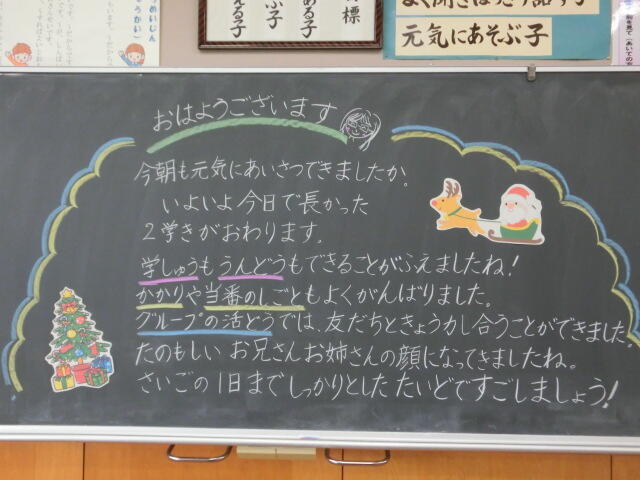 標
ある子
ぶ子
える子
よく聞きはっきり話す子
元気にあそぶ子
めいじん
おはようございます
今朝も元気にあいさつできましたか。
いよいよ今日で長かった
2学きがおわります。
学しゅうもうんどうもできることがふえましたね!
かかりや当番のしごともよくがんばりました。
グループの活どうでは、友だちときょう力し合うことができました。
たのもしいお兄さんお姉さんの顔になってきましたね。
さいごの1日までしっかりとしたたいどですごしましょう!